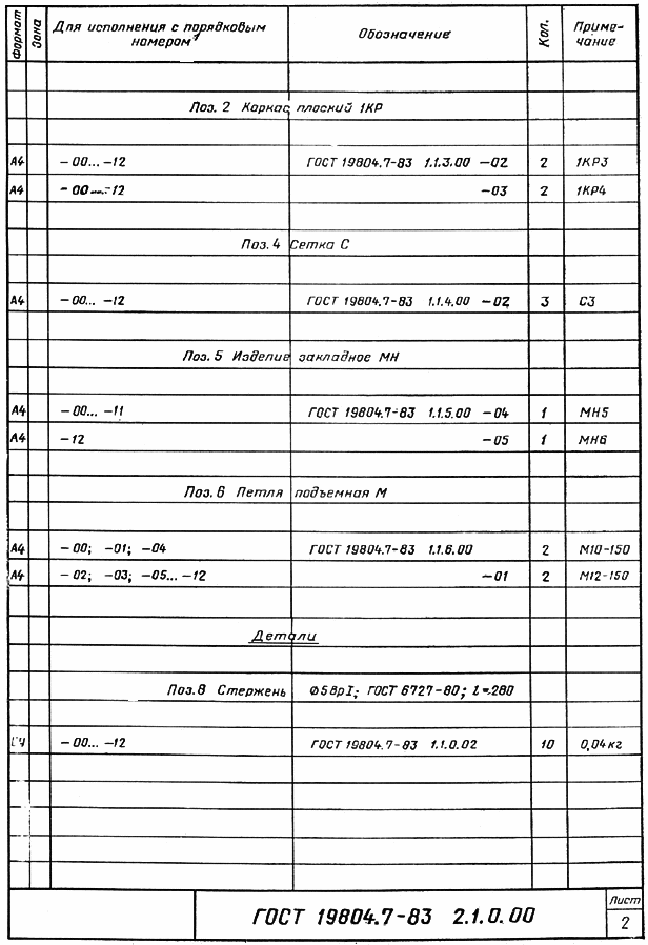 Формат
Зона
Для исполнения с порядковым номером¹
Обозначение
Кол.
Приме-
чание
Поз. 2 Каркас плоский 1КР
А4 -00... -12 ГОСТ 19804.7-83 1.1.3.00 -02 2 1КР3
А4 -00...-12 -03 2 1КР4
Поз. 4 Сетка С
А4 -00... -12 ГОСТ 19804.7-83 1.1.4.00 -02 3 С3
Поз. 5 Изделие закладное МН
А4 -00... -11 ГОСТ 19804.7-83 1.1.5.00 -04 1 МН5
А4 -12 -05 1 МН6
Поз. 6 Петля подъемная М
А4 -00; -01; -04 ГОСТ 19804.7-83 1.1.6.00 2 М10-150
А4 -02; -03; -05... -12 -01 2 М12-150
Детали
Поз. 8 Стержень ∅5ВрI; ГОСТ 6727-80; l=280
СЧ -00... -12 ГОСТ 19804.7-83 1.1.0.02 10 0,04кг
ГОСТ 19804.7-83 2.1.0.00
Лист
2